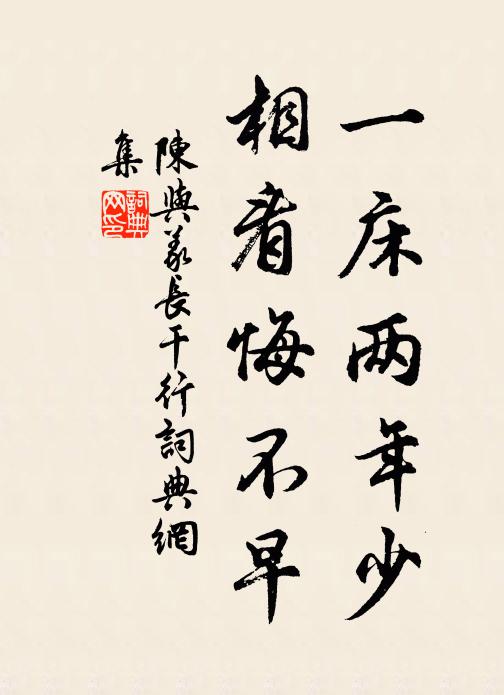 一床两年少
相看悔不早
陳與義長干行詞典網
集
詞典網印